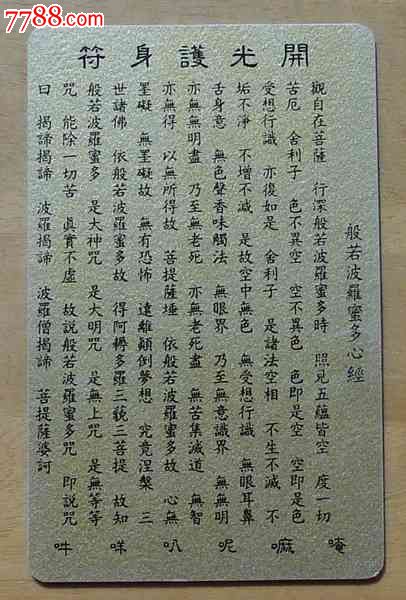 7788.com
開光護身符
般若波羅蜜多心經
觀自在菩薩 行深般若波羅蜜多時 照見五蘊皆空 度一切
苦厄 舍利子 色不異空 空不異色 色即是空 空即是色
受想行識 亦復如是 舍利子 是諸法空相 不生不滅 不
垢不淨 不增不減 是故空中無色 無受想行識 無眼耳鼻
舌身意 無色聲香味觸法 無眼界 乃至無意識界 無無明
亦無無明盡 乃至無老死 亦無老死盡 無苦集滅道 無智
亦無得 以無所得故 菩提薩埵 依般若波羅蜜多故 心無
罣礙 無罣礙故 無有恐怖 遠離顛倒夢想 究竟涅槃 三
世諸佛 依般若波羅蜜多故 得阿耨多羅三藐三菩提 故知
般若波羅蜜多 是大神咒 是大明咒 是無上咒 是無等等
咒 能除一切苦 真實不虛 故說般若波羅蜜多咒 即說咒
曰 揭諦揭諦 波羅揭諦 波羅僧揭諦 菩提薩婆訶
唵 嘛 呢 叭 咪 吽